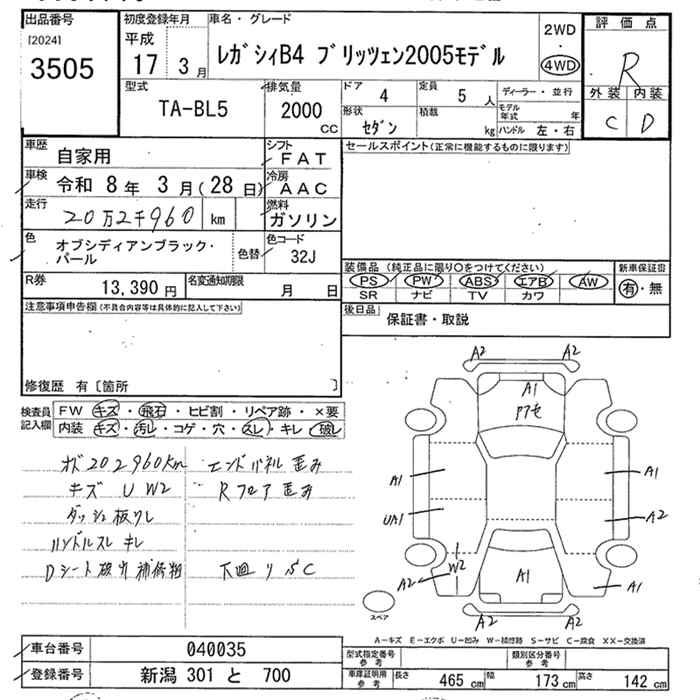 出品番号
[2024]
3505
初度登録年月
平成
17 3月
車名・グレード
レガシィB4 ブリッツェン2005モデル
2WD
・
4WD
評価点
R
外装 内装
C D
型式
TA-BL5
排気量
2000
cc
ドア 4
定員 5 人
形状 セダン
積載 kg
ディーラー・並行
モデル年式 年
ハンドル 左・右
車歴 自家用
シフト FAT
車検 令和 8年 3月(28日)
冷房 AAC
走行 20万2千960 km
燃料 ガソリン
色 オブシディアンブラック・パール
色替
色コード 32J
R券 13,390円
名変通知期限 月 日
セールスポイント(正常に機能するものに限ります)
装備品 (純正品に限り○をつけてください)
PS PW ABS エアB AW
SR ナビ TV カワ
新車保証書
有・無
後日品 保証書・取説
注意事項申告欄(不具合内容等は具体的に記入して下さい)
修復歴 有〔箇所 〕
検査員記入欄
FW キズ・飛石・ヒビ割・リペア跡・×要
内装 キズ・汚レ・コゲ・穴・スレ・キレ・破レ
オド202960km
キズ U W2
ダッシュ板ワレ
ハンドルスレ キレ
Dシート破れ補修判
エンドパネル歪み
Rフロア歪み
下廻りSC
A2 A2
A1
アアセ
A1 A1
UA1 A2
W2
A2 A1 A1
A2 A2
スペア
A-キズ E-エクボ U-凹み W-補修跡 S-サビ C-腐食 XX-交換済
車台番号 040035
登録番号 新潟 301 と 700
型式指定番号 参考
類別区分番号 参考
車庫証明用 参考
長さ 465 cm
幅 173 cm
高さ 142 cm